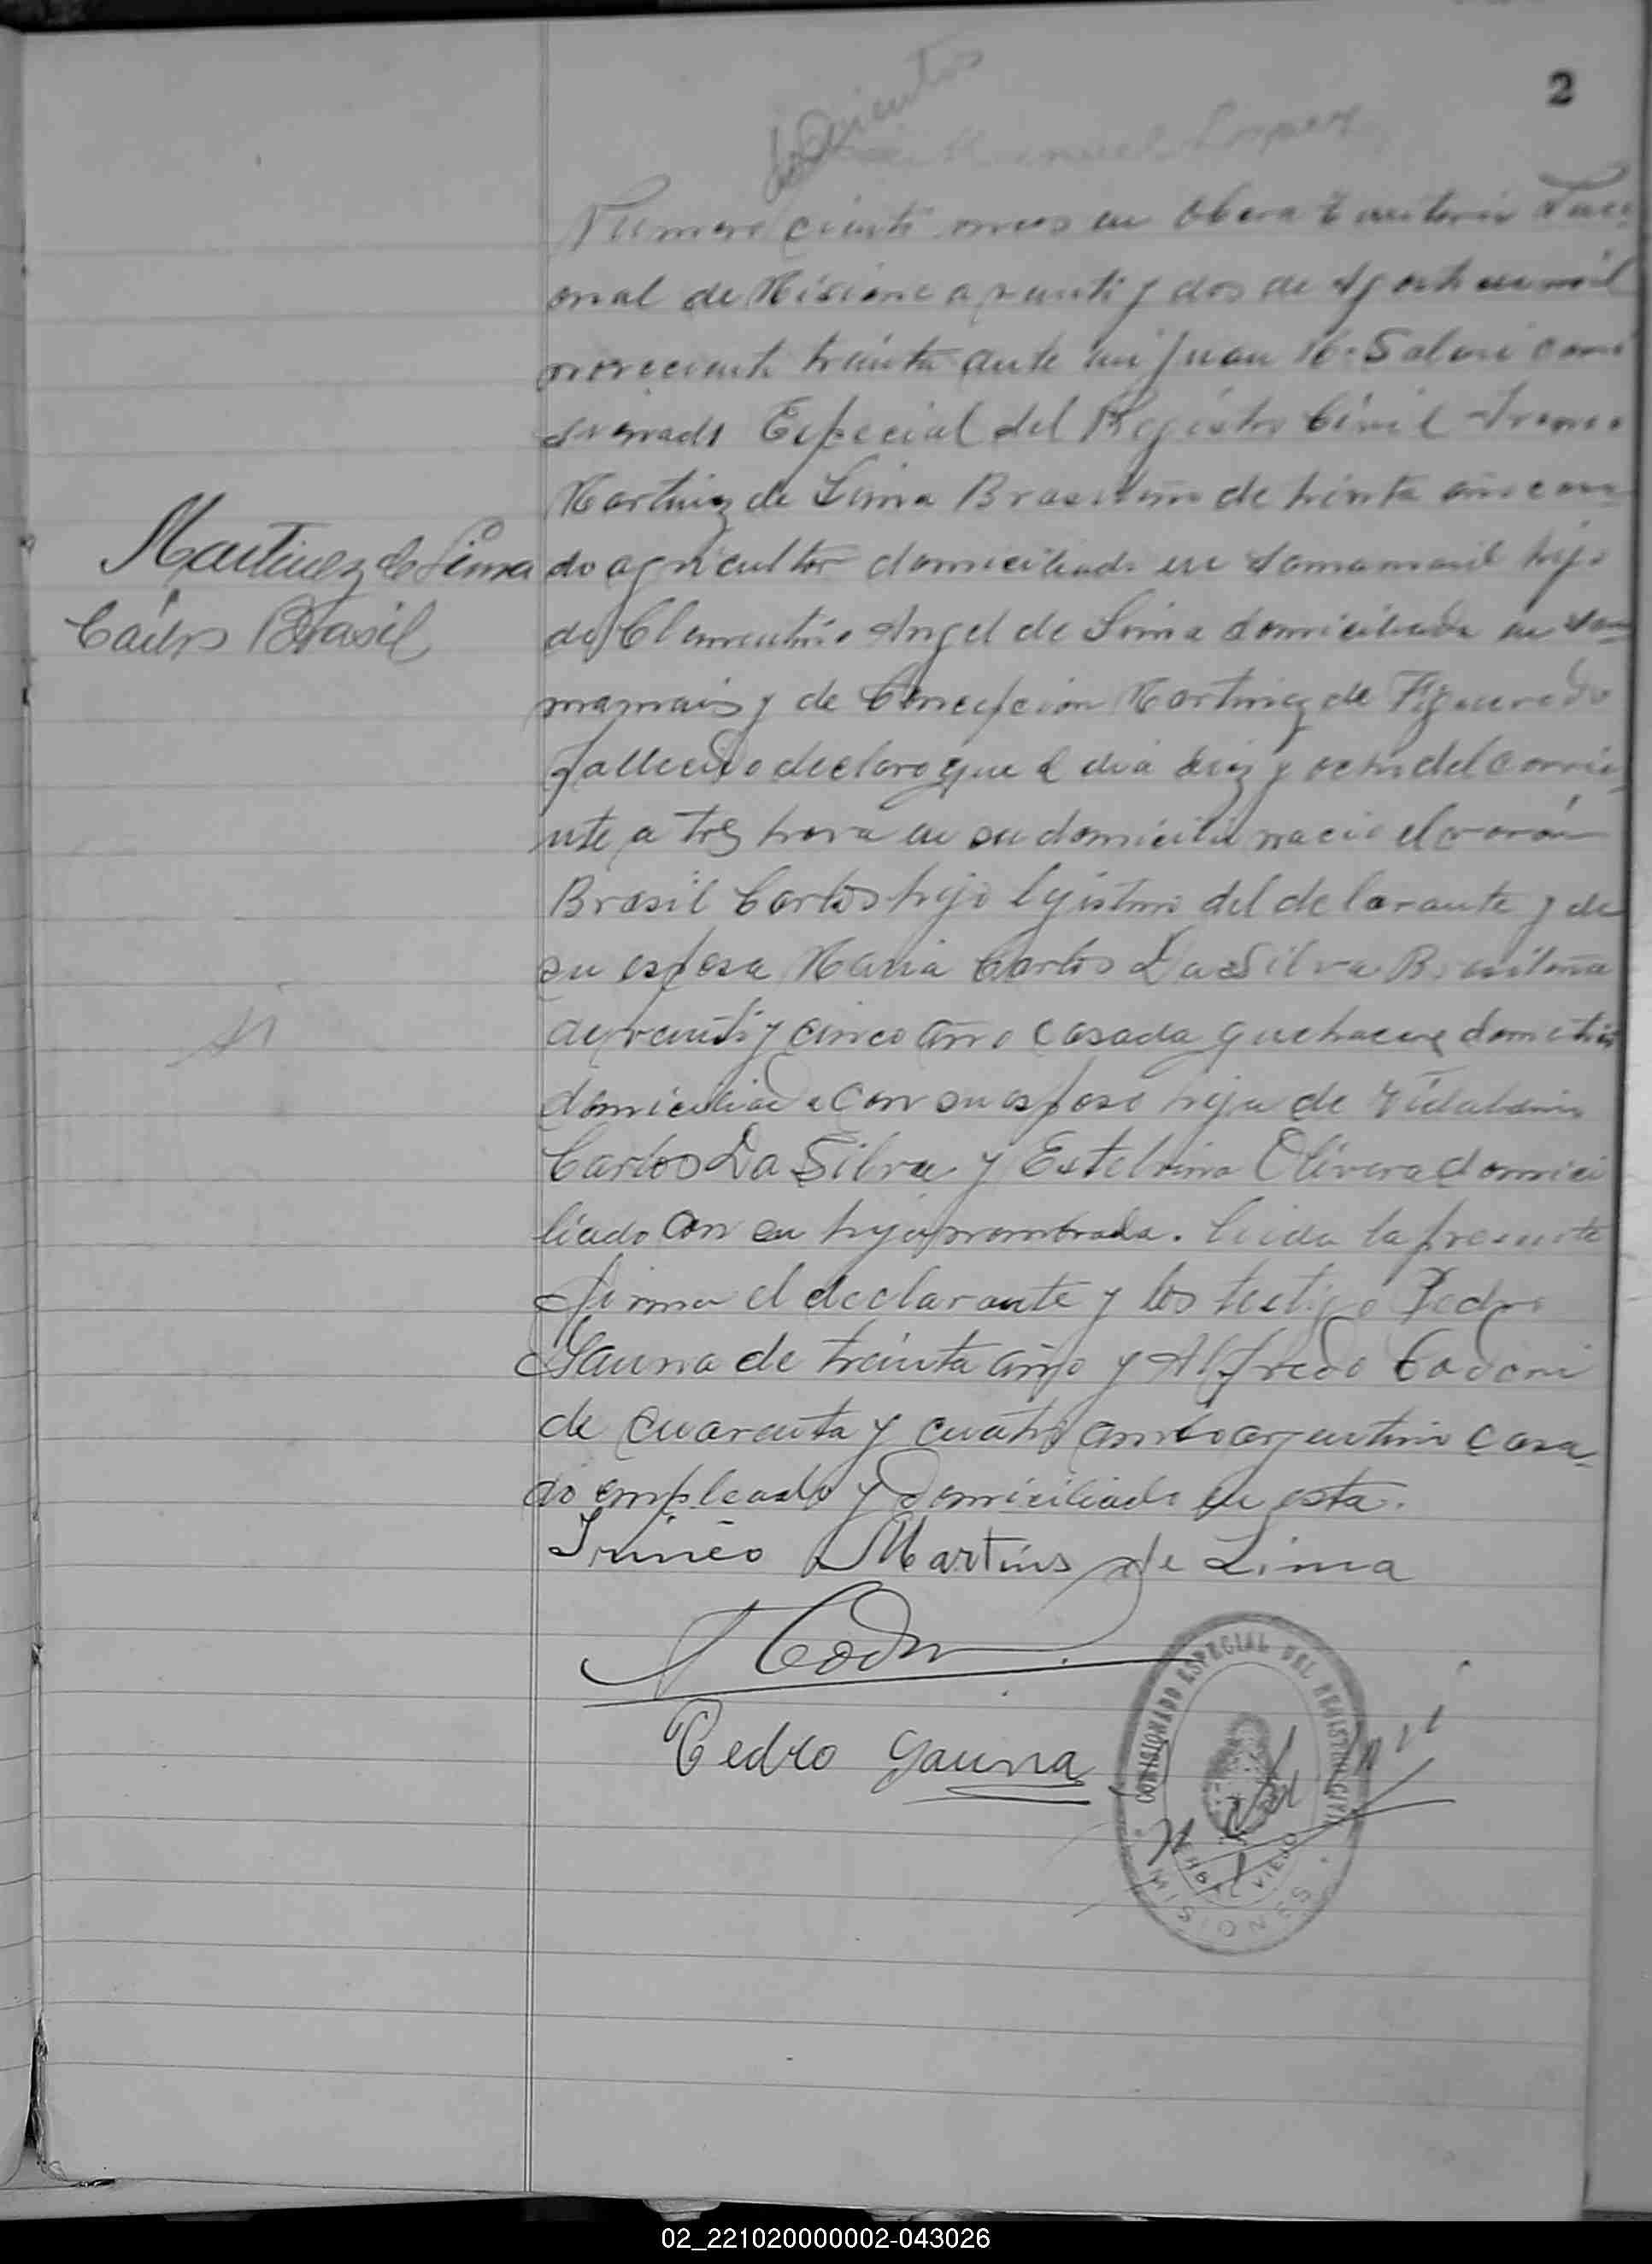 2
Numero ciento once en Obera Territorio Naci
onal de Misione a veinti y dos de Agosto de mil
noveciento treinta ante mi Juan Salari comi
sionado Especial del Registro Civil Irineo
Martinez de Lima Brasileño de treinta año casa
Martinez de Lima
Carlos Brasil
do agricultor domiciliado en hijo
de Clementino Angel de Lima domiciliado en
y de Concepcion Martinez de Figueredo
fallecido declaro que el dia diez y ocho del corrie
nte a tres hora en su domicilio nacio el varón
Brasil Carlos hijo legistimo del delarante y de
su esposa Maria Carlos Da Silva Brasileña
de veinti y cinco año casada quehacere dometico
domiciliada con su esposo hija de
Carlos Da Silva y Estelvina Olivera domici
liado con su hija nombrada. Leida la presente
firma el declarante y los testigo Pedro
Gauna de treinta año y Alfredo Codoni
de cuarenta y cuatro año argentino casa
do empleado y domiciliado en esta.
Irineo Martins de Lima
Pedro Gauna
COMISIONADO ESPECIAL DEL REGISTRO CIVIL
YERBAL VIEJO
MISIONES
02_221020000002-043026